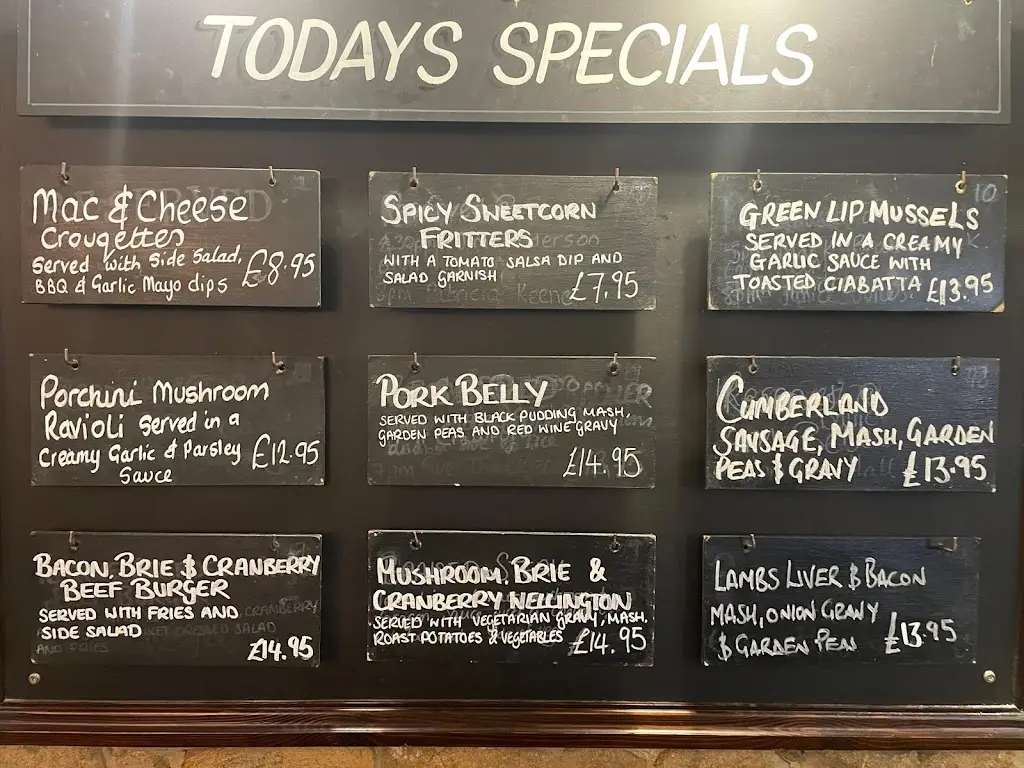 TODAYS SPECIALS
Mac & Cheese
Crougettes
Served with Side Salad,
BBQ & Garlic Mayo dips
£8.95
SPICY SWEETCORN
FRITTERS
WITH A TOMATO SALSA DIP AND
SALAD GARNISH
£7.95
GREEN LIP MUSSELS
SERVED IN A CREAMY
GARLIC SAUCE WITH
TOASTED CIABATTA £13.95
Porchini Mushroom
Ravioli served in a
Creamy Garlic & Parsley
Sauce
£12.95
PORK BELLY
SERVED WITH BLACK PUDDING MASH,
GARDEN PEAS AND RED WINE GRAVY
£14.95
CUMBERLAND
SAUSAGE, MASH, GARDEN
PEAS & GRAVY £13.95
BACON, BRIE & CRANBERRY
BEEF BURGER
SERVED WITH FRIES AND
SIDE SALAD
£14.95
MUSHROOM, BRIE &
CRANBERRY WELLINGTON
SERVED WITH VEGETARIAN GRAVY, MASH,
ROAST POTATOES & VEGETABLES £14.95
LAMBS LIVER & BACON
MASH, ONION GRAVY
& GARDEN PEAS
£13.95